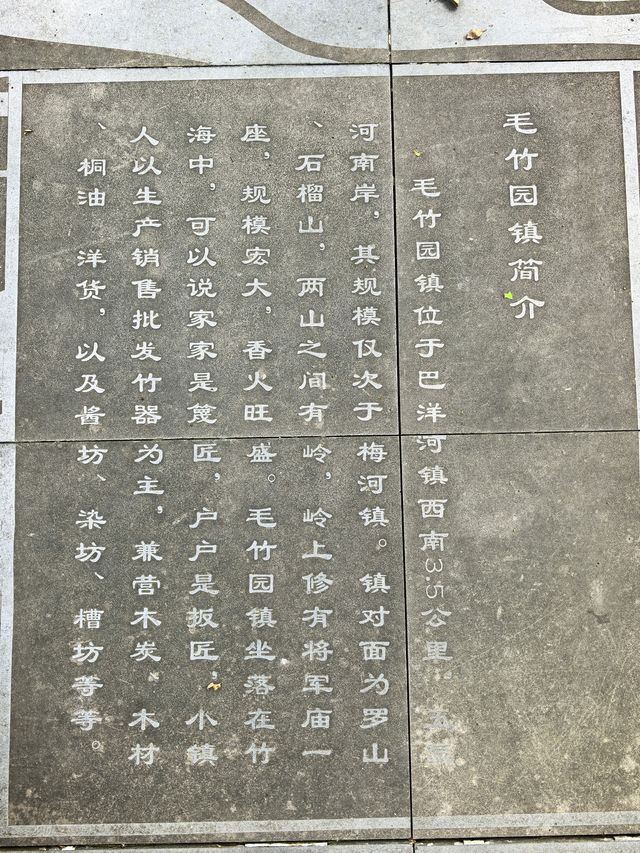 毛竹园镇简介
毛竹园镇位于巴洋河镇西南3.5公里。
河南岸，其规模仅次于梅河镇。镇对面为罗山
、石榴山，两山之间有岭，岭上修有将军庙一
座，规模宏大，香火旺盛。毛竹园镇坐落在竹
海中，可以说家家是篾匠，户户是扳匠，小镇
人以生产销售批发竹器为主，兼营木炭 木材
、桐油 洋货，以及酱坊、染坊、槽坊等等。